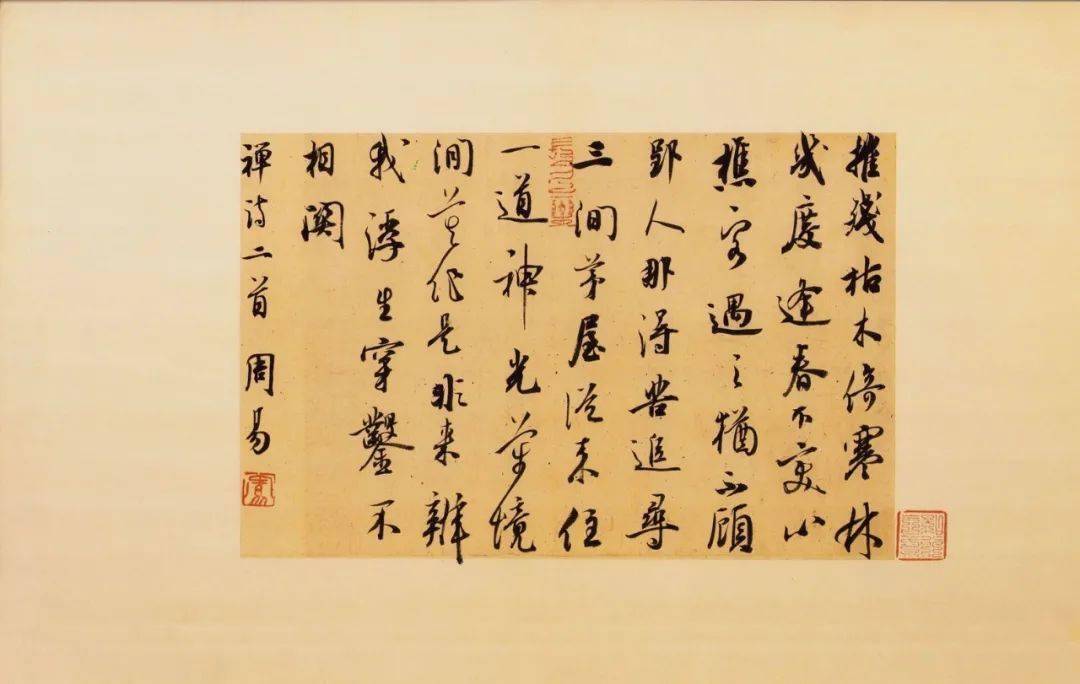 摧殘枯木倚寒林
幾度逢春不變心
樵客遇之猶不顧
郢人那得苦追尋
三間茅屋從來住
一道神光萬境
閒莫作是非來辨
我浮生穿鑿不
相關
禅詩二首 周易